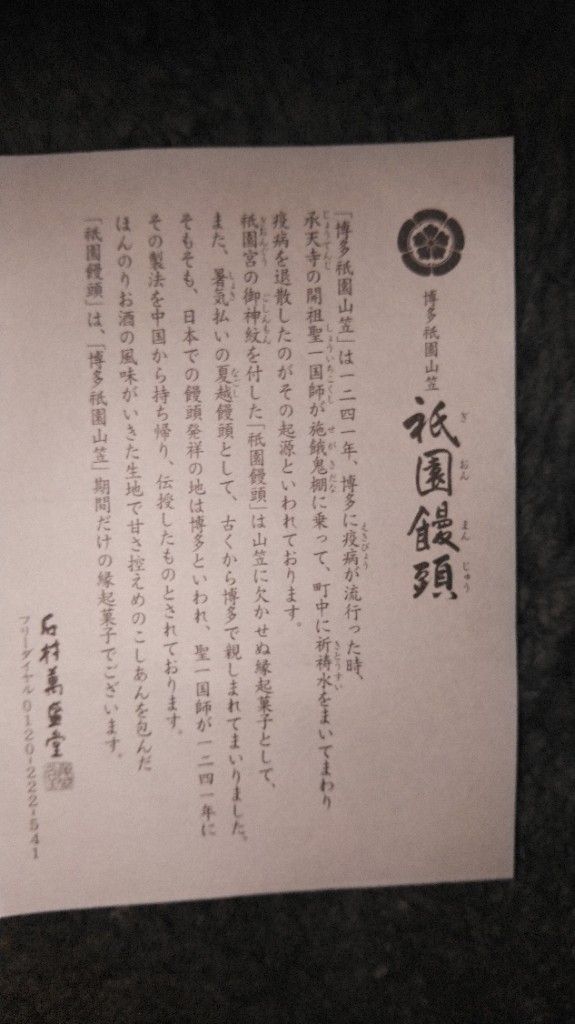 博多祇園山笠
祇園饅頭
ぎおんまんじゅう
「博多祇園山笠」は一二四一年、博多に疫病が流行った時、
えきびょう
承天寺の開祖聖一国師が施餓鬼棚に乗って、町中に祈祷水をまいてまわり
じょうてんじ しょういちこくし せがきだな きとうすい
疫病を退散したのがその起源といわれております。
祇園宮の御神紋を付した「祇園饅頭」は山笠に欠かせぬ縁起菓子として、
ぎおんぐう ごしんもん
また、暑気払いの夏越饅頭として、古くから博多で親しまれてまいりました。
しょき なごし
そもそも、日本での饅頭発祥の地は博多といわれ、聖一国師が一二四一年に
その製法を中国から持ち帰り、伝授したものとされております。
ほんのりお酒の風味がいきた生地で甘さ控えめのこしあんを包んだ
「祇園饅頭」は、「博多祇園山笠」期間だけの縁起菓子でございます。
石村萬盛堂
フリーダイヤル 0120-222-541